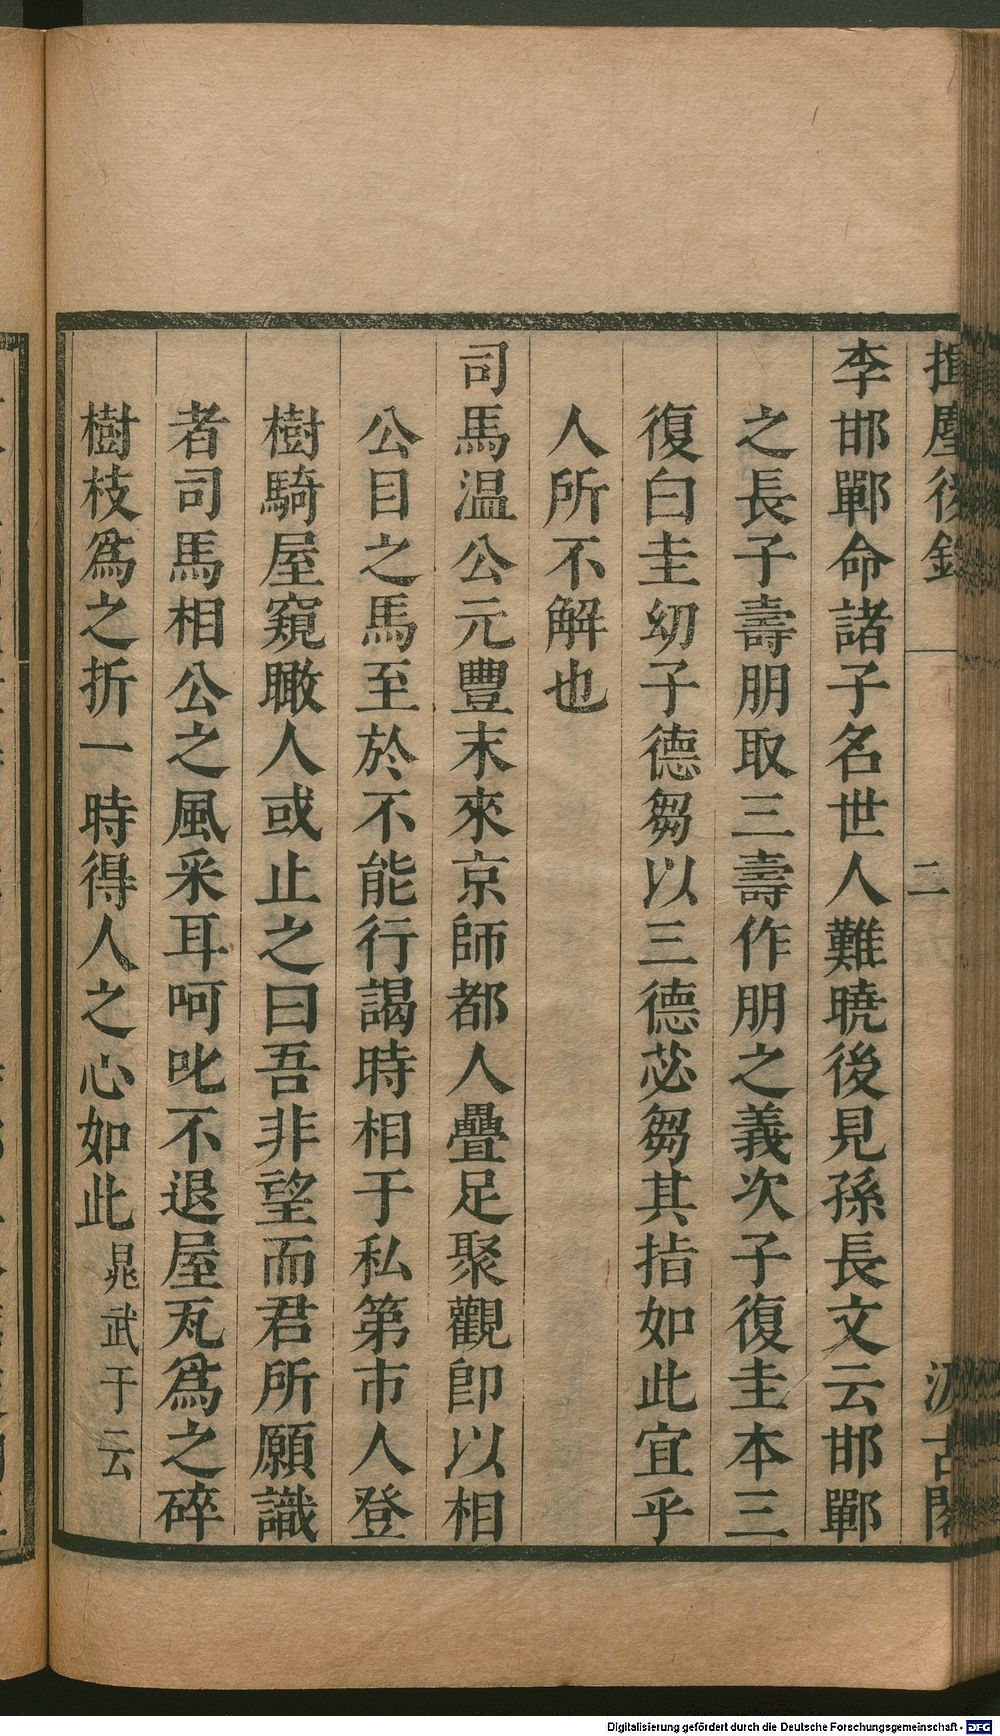 揮塵後錄 二 汲古閣
李邯鄲命諸子名世人難曉後見孫長文云邯鄲
之長子壽朋取三壽作朋之義次子復圭本三
復白圭幼子德芻以三德苾芻其指如此宜乎
人所不解也
司馬温公元豐末來京師都人疊足聚觀卽以相
公目之馬至於不能行謁時相于私第市人登
樹騎屋窺瞰人或止之曰吾非望而君所願識
者司馬相公之風采耳呵叱不退屋瓦爲之碎
樹枝爲之折一時得人之心如此晁武于云
Digitalisierung gefördert durch die Deutsche Forschungsgemeinschaft - DFG